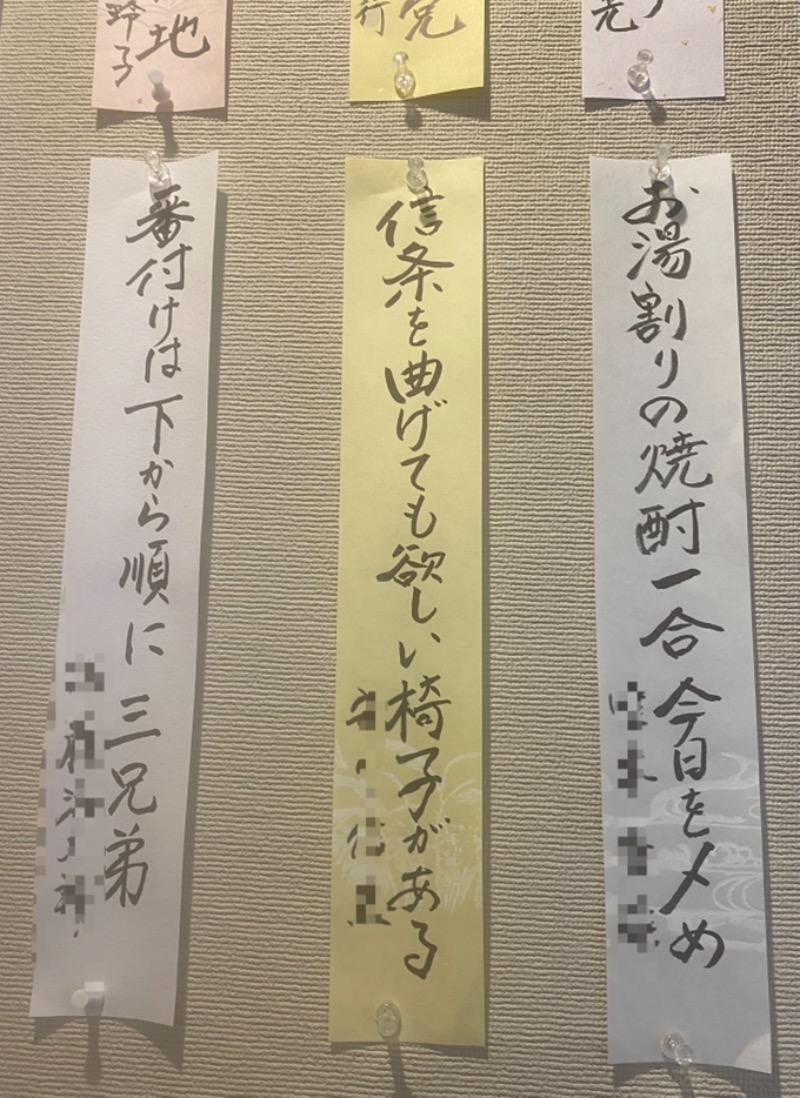 お湯割りの焼酎一合今日を〆め
信条を曲げても欲しい椅子がある
番付けは下から順に三兄弟
兎
行
地
玲子